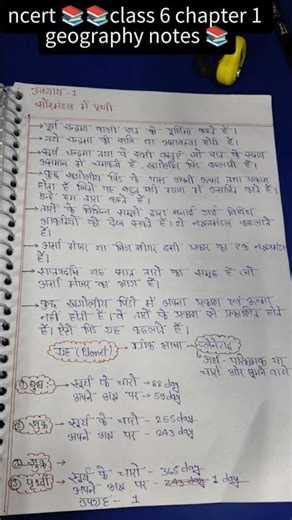 ncert 📚📚class 6 chapter 1
geography notes 📚
अध्याय -1
सौरमंडल में पृथ्वी
→ पूर्ण चन्द्रमा वाली रात को पूर्णिमा कहते हैं।
→ नये चन्द्रमा की रात्रि को अमावस्या होती है।
→ सूर्य चन्द्रमा तथा वे सभी वस्तुएँ जो रात के समय
आसमान में चमकती हैं, खगोलीय पिंड कहलाती हैं।
→ कुछ खगोलीय पिंड के पास अपनी ऊष्मा तथा प्रकाश
होता है जिसे वह बहुत बड़ी मात्रा में उत्सर्जित करते हैं।
इन्हें हम तारा कहते हैं।
→ तारों के विभिन्न समूहों द्वारा बनाई गई विविध
आकृतियों को देख सकते हैं। ये नक्षत्रमंडल कहलाते
हैं।
→ अर्सा मेजर या बिग बीयर इसी प्रकार का एक नक्षत्रमंडल
है।
→ सप्तऋषि यह सात तारों का समूह है जो
अर्सा मेजर का भाग है।
→ कुछ खगोलीय पिंडों में अपना प्रकाश एवं ऊष्मा
नहीं होती है। वे तारों के प्रकाश से प्रकाशित होते
हैं। ऐसे पिंड ग्रह कहलाते हैं।
ग्रह (Planet) → ग्रीक भाषा → प्लेनेटाइ
अर्थ - परिभ्रमक या
चारों ओर घूमने वाले
① बुध → सूर्य के चारों → 88 day
अपने अक्ष पर - 59 day
② शुक्र → सूर्य के चारों - 255 day
अपने अक्ष पर - 243 day
③ शुक्र
③ पृथ्वी → सूर्य के चारों - 365 day
अपने अक्ष पर - 243 day 1 day
उपग्रह - 1